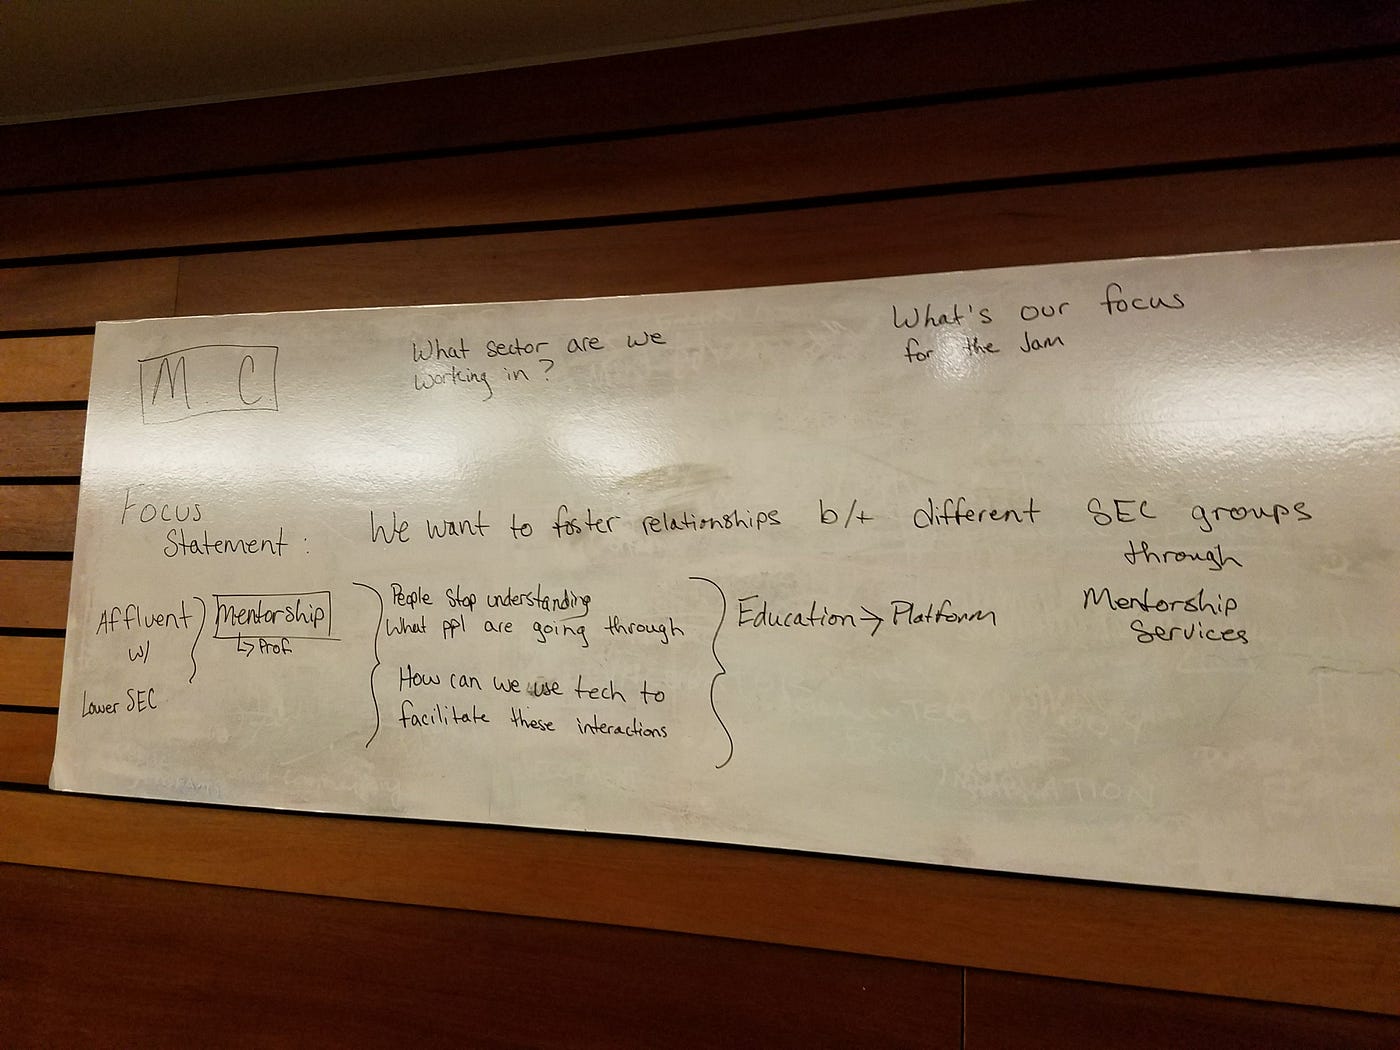 M. C.
What sector are we
working in?
What's our focus
for the Jam
Focus
Statement:
We want to foster relationships b/t different SEC groups
through
Mentorship
Services
Affluent
w/
Lower SEC
Mentorship
↳ Prof.
People stop understanding
what ppl are going through
How can we use tech to
facilitate these interactions
Education → Platform